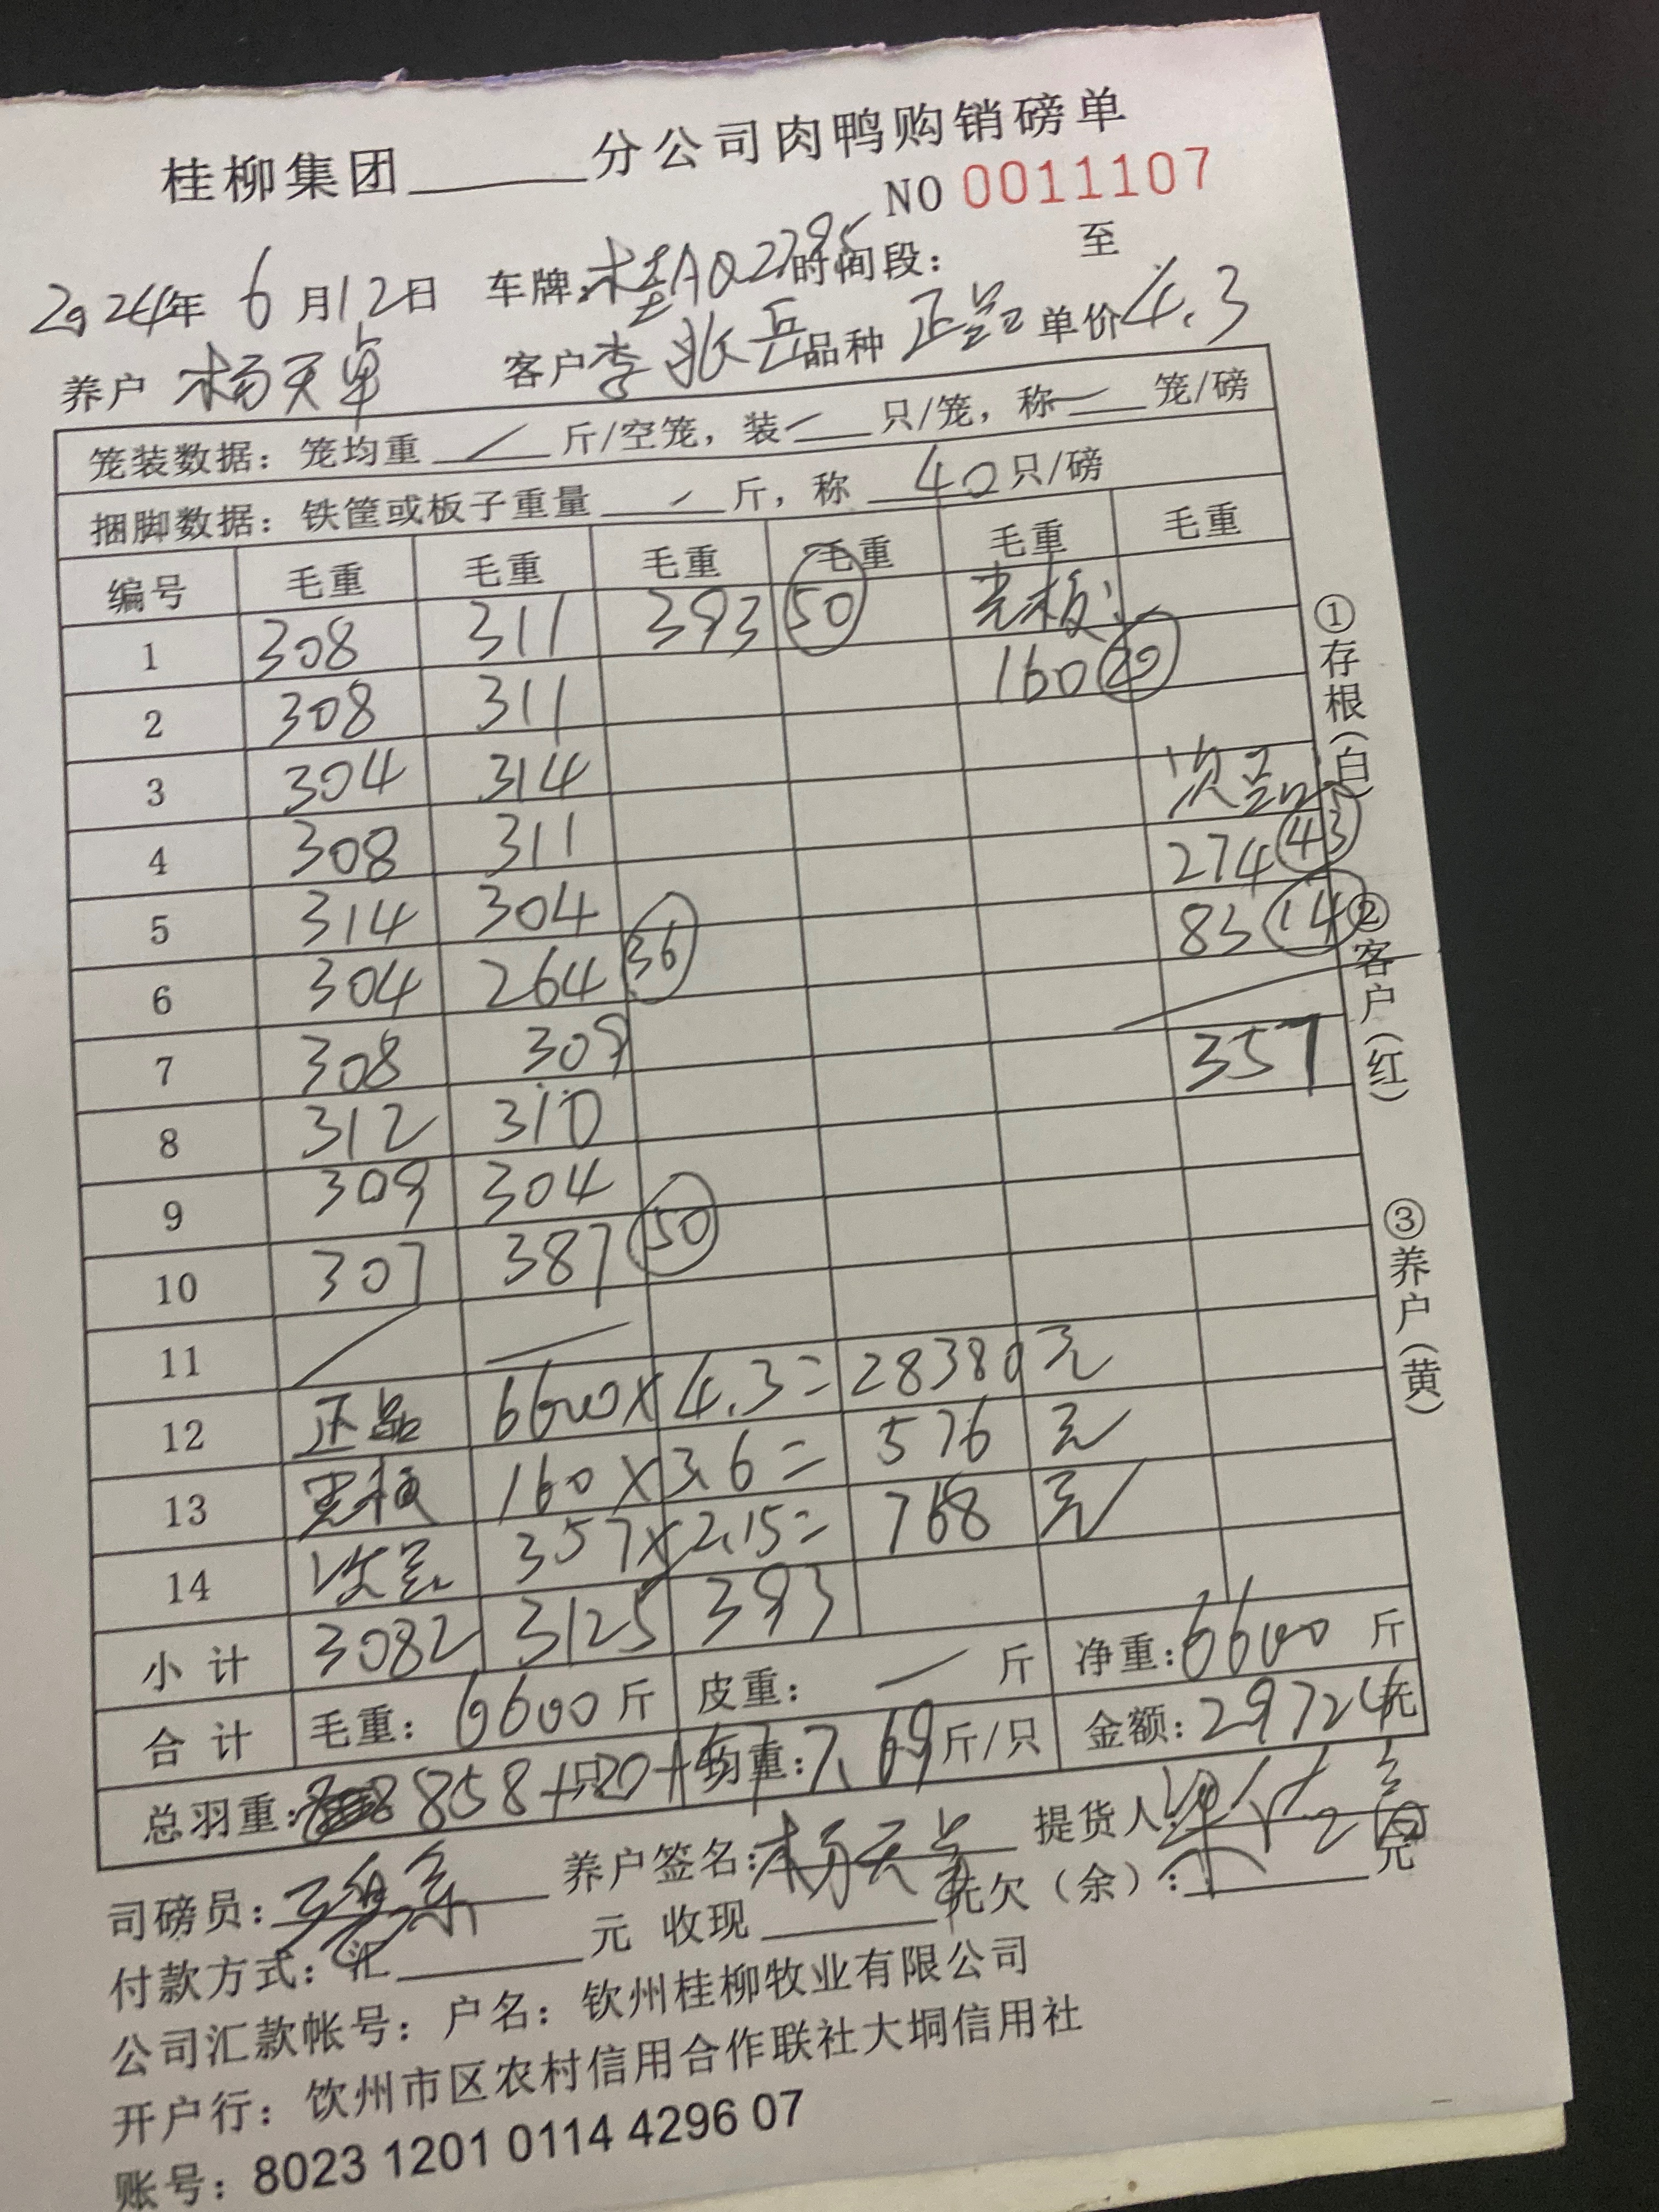 桂柳集团______分公司肉鸭购销磅单
NO 0011107
2024年 6月12日 车牌:桂AQ2795 时间段: 至
养户 杨天卓 客户 李兆岳 品种 正品 单价 4.3
笼装数据:笼均重 / 斤/空笼,装 / 只/笼,称 / 笼/磅
捆脚数据:铁筐或板子重量 / 斤,称 40 只/磅
编号 毛重 毛重 毛重 毛重 毛重 毛重
1 308 311 393 50 光板:
2 308 311 160 20
3 304 314 次品
4 308 311 274 43
5 314 304 83 14
6 304 264 36
7 308 309 357
8 312 310
9 309 304
10 307 387 50
11 / /
12 正品 6600×4.3=28380元
13 光板 160×3.6=576元
14 次品 357×2.15=768元
小计 3082 3125 393
合计 毛重:6600斤 皮重: / 斤 净重:6600斤
总羽重: 858+20+57 只 均重:7.69斤/只 金额:29724元
司磅员: 养户签名:杨天卓 提货人:
付款方式:汇______元 收现______元欠(余):______元
公司汇款帐号:户名:钦州桂柳牧业有限公司
开户行:钦州市区农村信用合作联社大垌信用社
账号:8023 1201 0114 4296 07
①存根(白)
②客户(红)
③养户(黄)